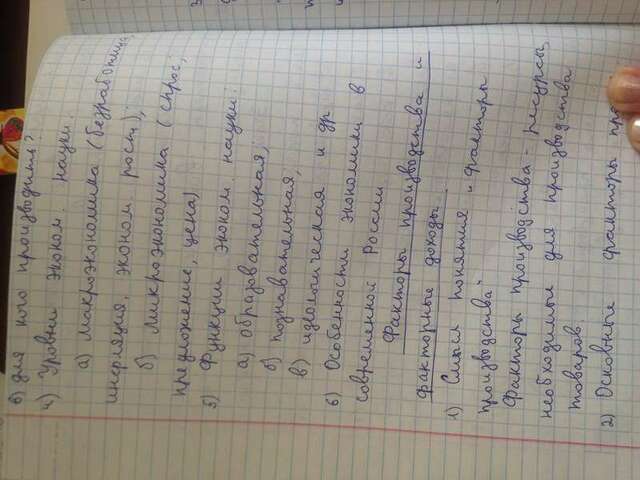 в) для кого производить?
4) Уровни эконом. науки.
а) макроэкономика (безработица,
инфляция, эконом. рост);
б) микроэкономика (спрос,
предложение, цена)
5) Функции эконом. науки.
а) образовательная;
б) познавательная,
в) идеологическая и др
6) Особенности экономики в
современной России
Факторы производства и
факторные доходы.
1) Смысл понятия "факторы
производства"
Факторы производства - ресурсы,
необходимые для производства
товаров.
2) Основные факторы про